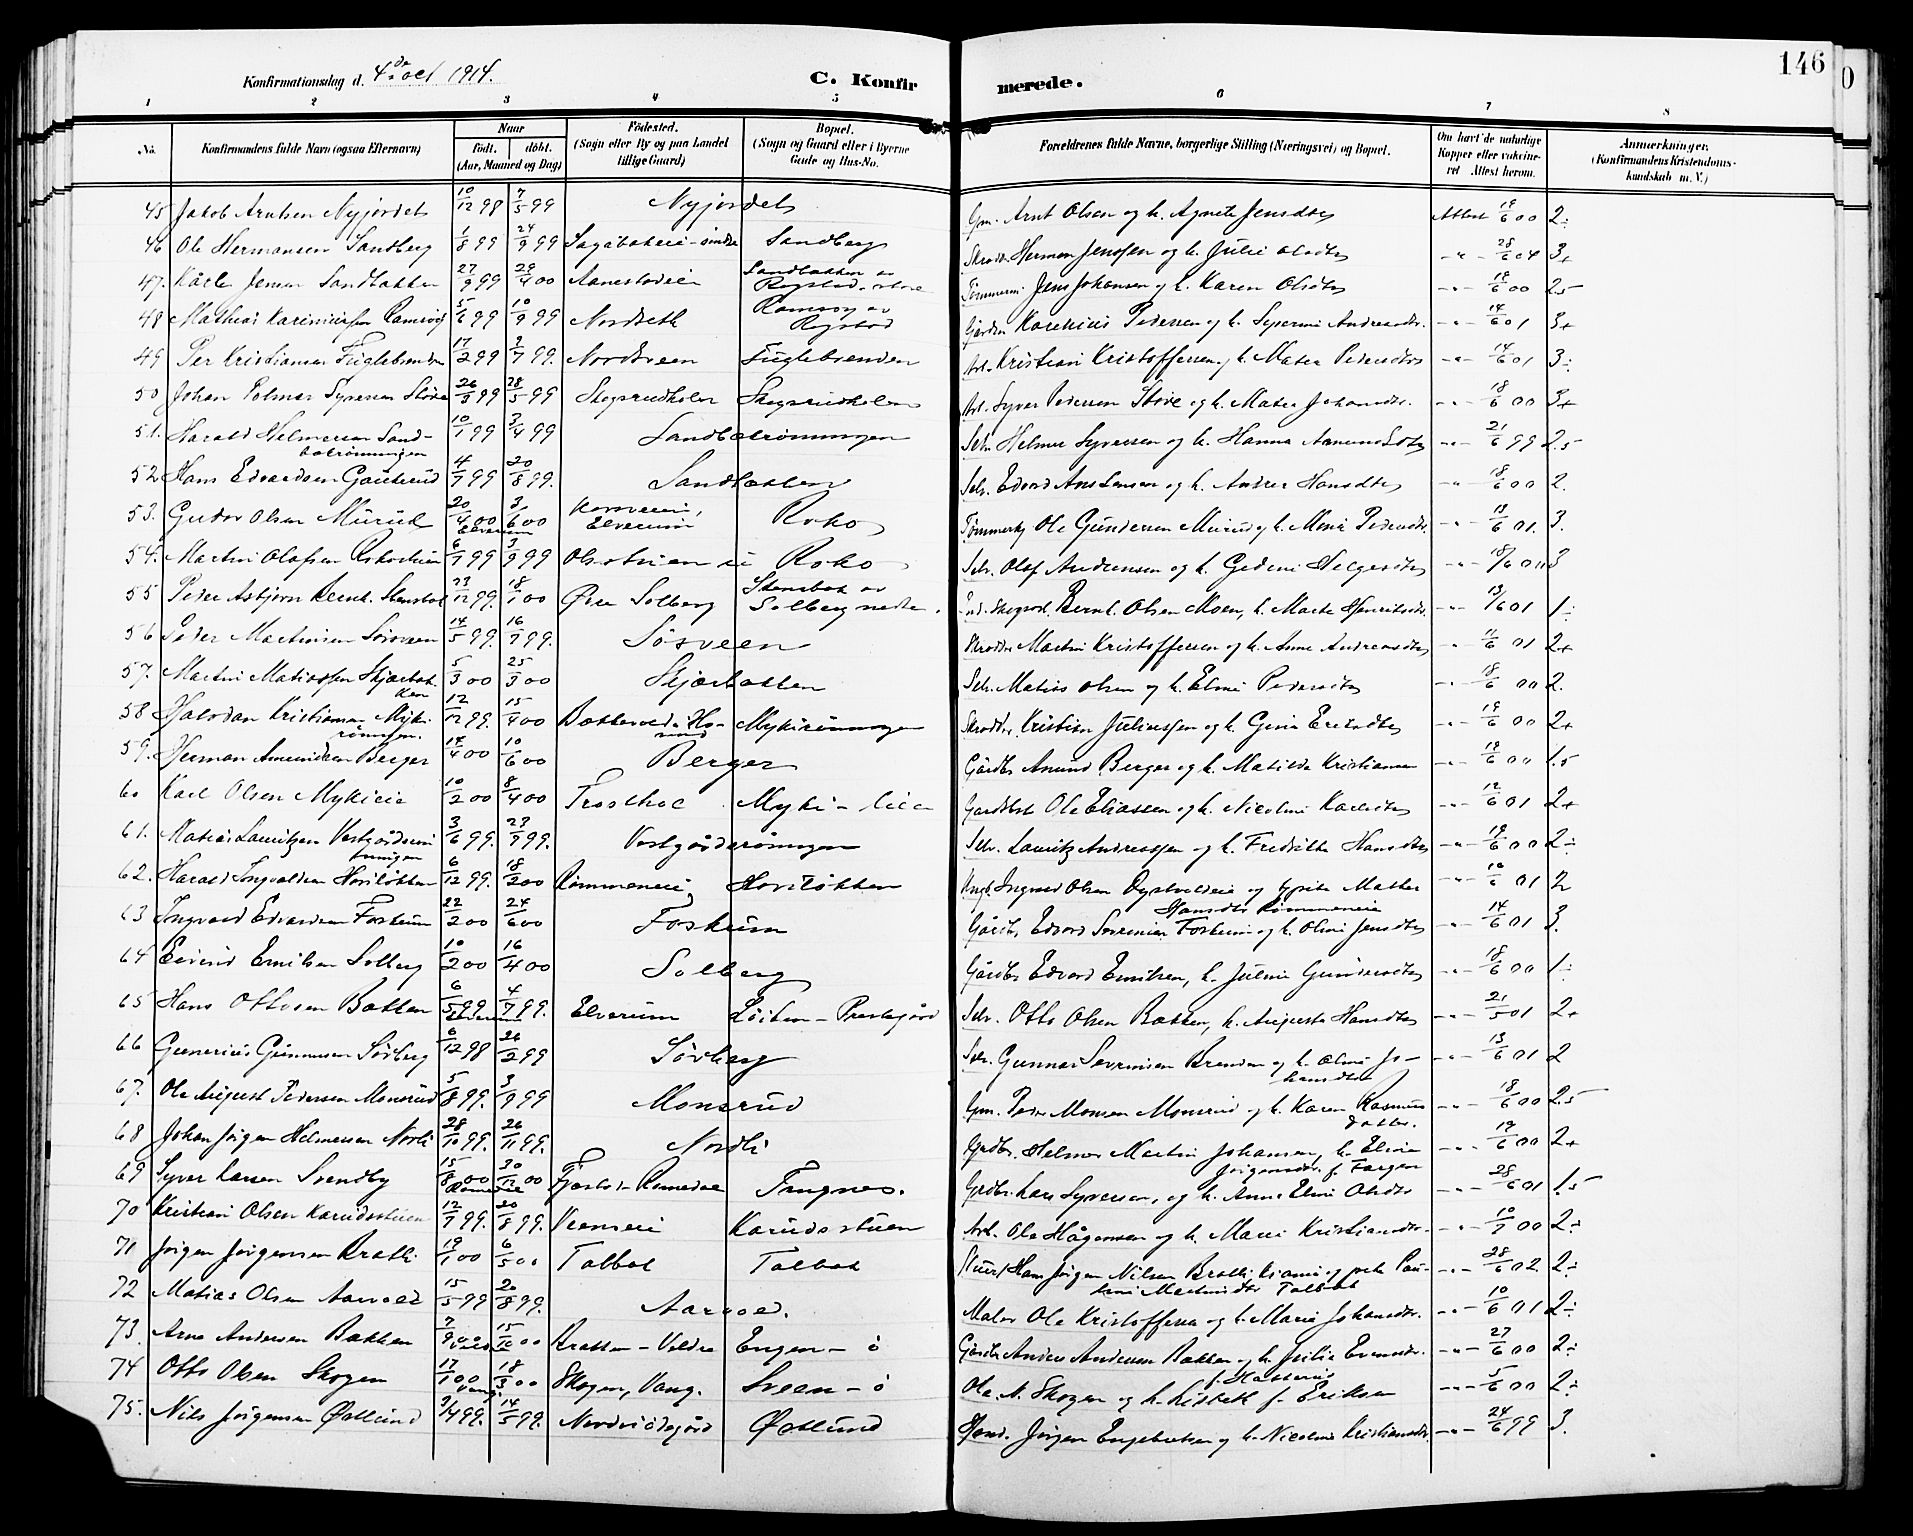 146
Konfirmationsdag d. 4de oct 1914.
C. Konfirmerede.
1 2 3 4 5 6 7 8
No. Konfirmandens fulde Navn (ogsaa Efternavn) Naar født. døbt. (Aar, Maaned og Dag) Fødested. (Sogn eller By og paa Landet tillige Gaard) Bopæl. (Sogn og Gaard eller i Byerne Gade og Hus-No. Forældrenes fulde Navne, borgerlige Stilling (Næringsvei) og Bopæl. Om havt de naturlige Kopper eller vakcineret Attest herom. Anmærkninger. (Konfirmandens Kristendomskundskab m. V.)
45 Jakob Arntsen Nyjordet 10/12 98 7/5 99 Nyjordet Gm. Arnt Olsen og h. Agnete Jensdtr Attest 19/6 00 2÷
46 Ole Hermansen Sandberg 1/8 99 24/9 99 Sandberg Skrædr. Herman Jenssen og h. Julie Olsdtr -"- 28/6 04 3+
47. Kåre Jensen Sandbakken 27/9 99 29/4 00 Aanestadeie Sandbakken av Rogstad Tømmerm. Jens Johansen og h. Karen Olsdtr -"- 18/6 00 2.5
48 Mathias Karenius Ramsøy 5/6 99 10/9 99 Nordseth Ramsøy av Rogstad Gårdbr Karenius Pedersen og h. Syverine Andreasdtr. -"- 14/6 01 3+
49 Per Kristiansen Fuglebrenden 17/2 99 2/7 99. Nordsveen Fuglebrenden Arb. Kristian Kristoffersen og h. Mathea Pedersdtr -"- 14/6 01 3÷
50 Johan Polmar Syversen Støve 26/3 99 28/5 99 Skogsrudholen Skogsrudholen Arb. Syver Pedersen Støve og h. Mathea Johansdtr. -"- 18/6 00 3+
51. Harald Helmersen Sandbakrønningen 10/1 99 3/4 99 Sandbakrønningen Selv. Helmer Syversen og h. Hanna Amundsdtr -"- 21/6 99 2.5
52 Hans Edvardsen Gauterud 4/7 99 20/8 99. Sandbakken Selv. Edvard Amundsen og h. Andrea Hansdtr -"- 18/6 00 2.
53. Gudor Olsen Murud 20/4 00 Elverum 3/6 00 Elverum Roko Tømmerh. Ole Gundersen Murud og h. Mina Pedersdtr -"- 13/6 01. 3.
54. Martin Olafsen Rokostuen 6/7 99 3/9 99 Roko Selv. Olaf Andersen og h. Gedine Helgesdtr -"- 18/6 01 3
55 Peder Asbjørn Bernh. Stensbak 23/12 99. 18/1 00 Øvre Solberg Stensbak av Solberg nedre. Bernt Olsen Moen, h. Marte Henriksdtr -"- 13/6 01 1÷
56 Peder Martinsen Sørsveen 14/5 99. 16/7 99. Sørsveen Skrædder Martin Kristoffersen og h. Anne Andreasdtr -"- 11/6 01 2+
57. Martin Matiassen Skjærbakken 5/3 00 25/3 00 Skjærbakken Selv. Matias Olsen og h. Elmi Pedersdtr -"- 18/6 00 2.
58 Halvdan Kristiansen Mykirønningen. 12/12 99. 15/4 00 Mykirønningen Skrædder Kristian Juliussen og h. Gina Eriksdtr -"- 19/6 00 2+
59. Herman Amundsen Berger 14/4 00 10/6 00 Berger Gårdbr Amund Berger og h. Matilde Kristiansen -"- 19/6 00 1.5
60 Karl Olsen Mykileie 10/2 00 8/4 00 Troslhol Myki-leie Gårdbr Ole Eliassen og h. Nicoline Karlsdtr -"- 12/6 01 2+
61. Matias Lauritzen Vestgårdsrønningen 3/6 99. 23/7 99. Vestgårdsrønningen Selv. Lauritz Andreassen og h. Fredrikke Hansdtr -"- 19/6 00 2÷
62. Harald Ingvaldsen Horsløkken 6/12 99. 18/2 00 Rømmeneie Horsløkken Ungk. Ingvald Olsen og pike Mathea Hansdtr Rømmeneie -"- 01 2
63 Ingvald Edvardsen Foskum 22/2 00 24/6 00 Foskum Gårdbr Edvard Severinsen Foskum og h. Oline Jensdtr -"- 14/6 01 3.
64 Eivind Emilsen Solberg 10/2 00 16/4 00 Solberg Gårdbr Edvard Emilsen, h. Julie Gundersdtr -"- 18/6 00 1÷
65 Hans Ottosen Bakken 6/5 99 Elverum 4/7 99. Elverum Løiten-Prestegård Selv. Otto Olsen Bakken, h. Augusta Hansdtr -"- 21/5 01 2+
66 Gunerius Gunnarsen Sørberg 6/12 98 26/2 99 Sørberg Selv. Gunnar Severinsen Brenden og h. Oline Johansdtr -"- 13/6 01 2
67. Ole August Pedersen Monsrud 5/8 99. 3/9 99 Monsrud Gm. Peder Monsen Monsrud og h. Karen Rasmusdatter. -"- 18/6 00 2.5
68 Johan Jørgen Helmersen Nordli 28/10 99. 26/11 99. Nordli Grdbr. Helmer Martin Johansen, h. Eline Jørgensdtr f. Farger -"- 19/6 00 2+
69 Syver Larsen Svendby 15/8 00 Romedal 30/12 00 Romedal Tingnes. Grdbr. Lars Syversen, og h. Anne Eline Olsdtr -"- 28/6 01 1.5
70 Kristian Olsen Karudsstuen 12/7 99. 20/8 99. Veeneeie Karudsstuen Arb. Ole Hågensen og h. Mari Kristiansdtr. -"- 10/7 00 2÷
71 Jørgen Jørgensen Bratli. 19/1 00 6/5 00 Talbak Talbak Hans Jørgen Nilsen Bratli og pike Pauline Martinsdtr Talbak -"- 28/6 02 2÷
72 Matias Olsen Aarvold 15/5 99 20/8 99. Aarvold. Maler Ole Kristoffersen og h. Marie Johansdtr. -"- 10/6 01 2÷
73. Arne Andersen Bakken 7/9 00 15/10 00 Bratten-Veldre Engen-ø Gårdbr Anders Andersen Bakken og h. Julia Evensdtr. -"- 27/6 00 2÷
74 Otto Olsen Skogen 17/1 00 Vang 18/3 00 Skogen, Vang. Sveen-ø Ole N. Skogen og h. Lisbeth f. Eriksen -"- 5/6 00 2÷
75. Nils Jørgensen Østlund 2/4 99. 14/5 99. Nordvisdegård Østlund Jørgen Engebretsen og h. Nicoline Kristiansdtr. -"- 24/6 99 3.